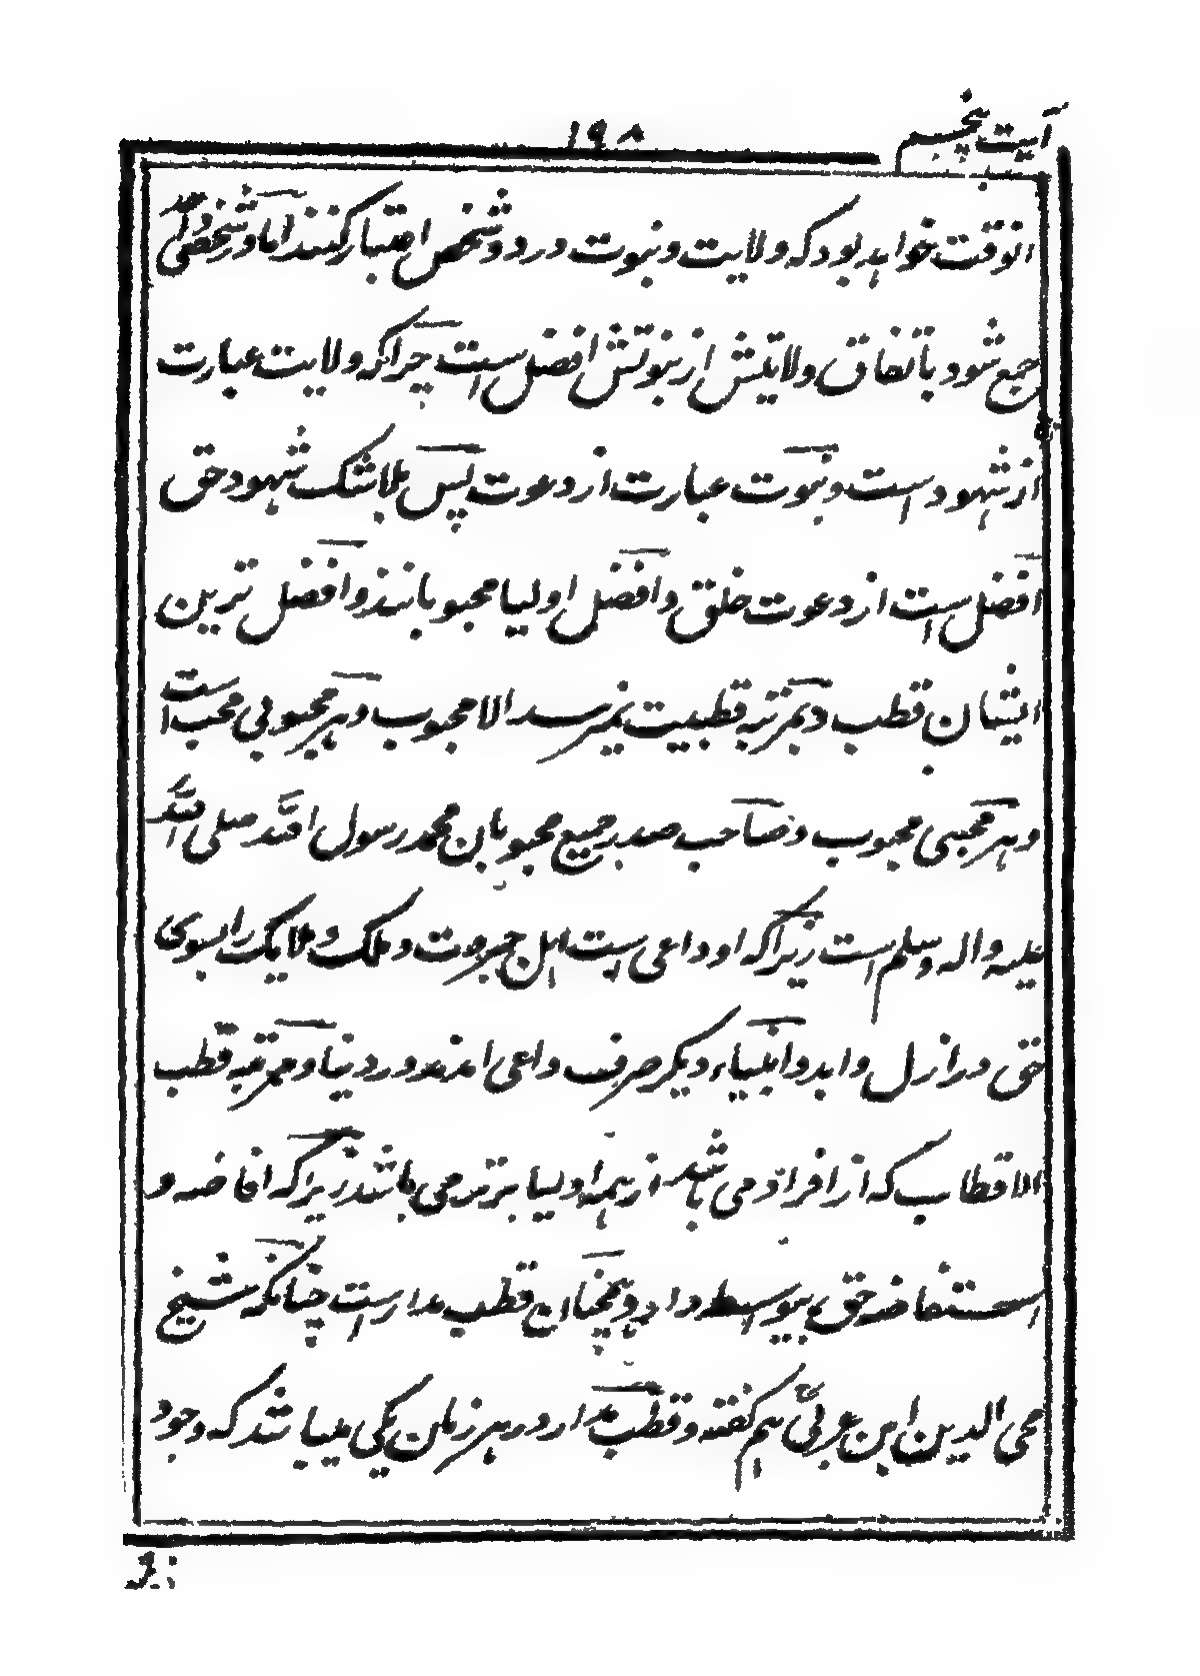 آیت پنجم
۱۹۸
انوقت خواہد بود کہ ولایت و نبوت در دو شخص اعتبار کنند اما در شخصی واحد
جمع شود باتفاق ولایتش از نبوتش افضل است چراکہ ولایت عبارت
از شہود است و نبوت عبارت از دعوت پس بلاشک شہود حق
افضل است از دعوت خلق و افضل اولیا محبوبانند و افضل ترین
ایشان قطب و بمرتبہ قطبیت نمیرسد الا محبوب و ہر محبوبی محب است
و ہر محبی محبوب و صاحب صدر جمیع محبوبان محمد رسول اللہ صلی اللہ
علیہ والہ وسلم است زیراکہ او داعی است اہل جبروت و ملک و ملایک را بسوی
حق در ازل و ابد و انبیاء دیگر صرف داعی اند در دنیا و مرتبہ قطب
الاقطاب کہ از افراد می باشد از ہمہ اولیا برتر می باشد زیراکہ افاضہ و
استفاضہ حق بیواسطہ دارد و ہمچنان قطب مدار است چنانکہ شیخ
محی الدین ابن عربی ہم گفتہ و قطب مدار در ہر زمان یکی میباشد کہ وجود